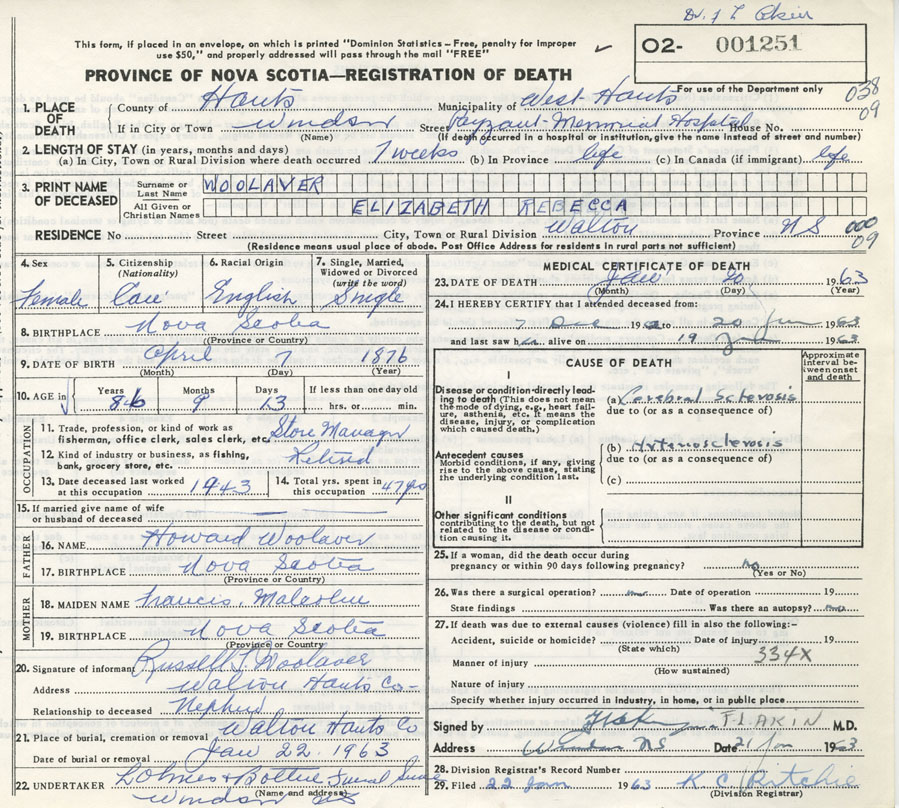 Dr. F L Akin
This form, if placed in an envelope, on which is printed "Dominion Statistics – Free, penalty for improper
use $50," and properly addressed will pass through the mail "FREE"
O2- 001251
PROVINCE OF NOVA SCOTIA—REGISTRATION OF DEATH
For use of the Department only
038
09
1. PLACE OF DEATH
County of Hants Municipality of West-Hants
If in City or Town Windsor Street Payzant-Memorial Hospital House No.
(Name) (If death occurred in a hospital or institution, give the name instead of street and number)
2. LENGTH OF STAY (in years, months and days)
(a) In City, Town or Rural Division where death occurred 7 weeks (b) In Province life (c) In Canada (if immigrant) life
3. PRINT NAME OF DECEASED
Surname or Last Name WOOLAVER
All Given or Christian Names ELIZABETH REBECCA
RESIDENCE No Street City, Town or Rural Division Walton Province NS 000
09
(Residence means usual place of abode. Post Office Address for residents in rural parts not sufficient)
4. Sex Female
5. Citizenship (Nationality) Can
6. Racial Origin English
7. Single, Married, Widowed or Divorced (write the word) Single
8. BIRTHPLACE Nova Scotia
(Province or Country)
9. DATE OF BIRTH April 7 1876
(Month) (Day) (Year)
10. AGE in Years 86 Months 9 Days 13 If less than one day old hrs. or min.
OCCUPATION
11. Trade, profession, or kind of work as
fisherman, office clerk, sales clerk, etc. Store Manager
12. Kind of industry or business, as fishing,
bank, grocery store, etc. Retired
13. Date deceased last worked
at this occupation 1943
14. Total yrs. spent in
this occupation 47 yrs
15. If married give name of wife
or husband of deceased
FATHER
16. NAME Howard Woolaver
17. BIRTHPLACE Nova Scotia
(Province or Country)
MOTHER
18. MAIDEN NAME Francis, Malcolm
19. BIRTHPLACE Nova Scotia
(Province or Country)
20. Signature of informant Russell Woolaver
Address Walton Hants Co-
Relationship to deceased Nephew
21. Place of burial, cremation or removal Walton Hants Co
Date of burial or removal Jan 22. 1963
22. UNDERTAKER Funeral Service
(Name and address)
Windsor NS
MEDICAL CERTIFICATE OF DEATH
23. DATE OF DEATH Jan 20 1963
(Month) (Day) (Year)
24. I HEREBY CERTIFY that I attended deceased from:
7 Dec 19 to 20 Jan 1963
and last saw h alive on 19 Jan 1963
CAUSE OF DEATH
Approximate interval between onset and death
I
Disease or condition directly leading to death (This does not mean
the mode of dying, e.g., heart failure, asthenia, etc. It means the
disease, injury, or complication
which caused death.)
(a) Cerebral Sclerosis
due to (or as a consequence of)
Antecedent causes
Morbid conditions, if any, giving
rise to the above cause, stating
the underlying condition last.
(b) Arteriosclerosis
due to (or as a consequence of)
(c)
II
Other significant conditions
contributing to the death, but not
related to the disease or condition causing it.
25. If a woman, did the death occur during
pregnancy or within 90 days following pregnancy? No
(Yes or No)
26. Was there a surgical operation? Date of operation 19
State findings Was there an autopsy?
27. If death was due to external causes (violence) fill in also the following:–
Accident, suicide or homicide? Date of injury 19
(State which) 334X
Manner of injury
(How sustained)
Nature of injury
Specify whether injury occurred in industry, in home, or in public place
Signed by F.L AKIN M.D.
Address Windsor NS Date 21 Jan 1963
28. Division Registrar's Record Number
29. Filed 22 Jan 1963 K C Ritchie
(Division Registrar)